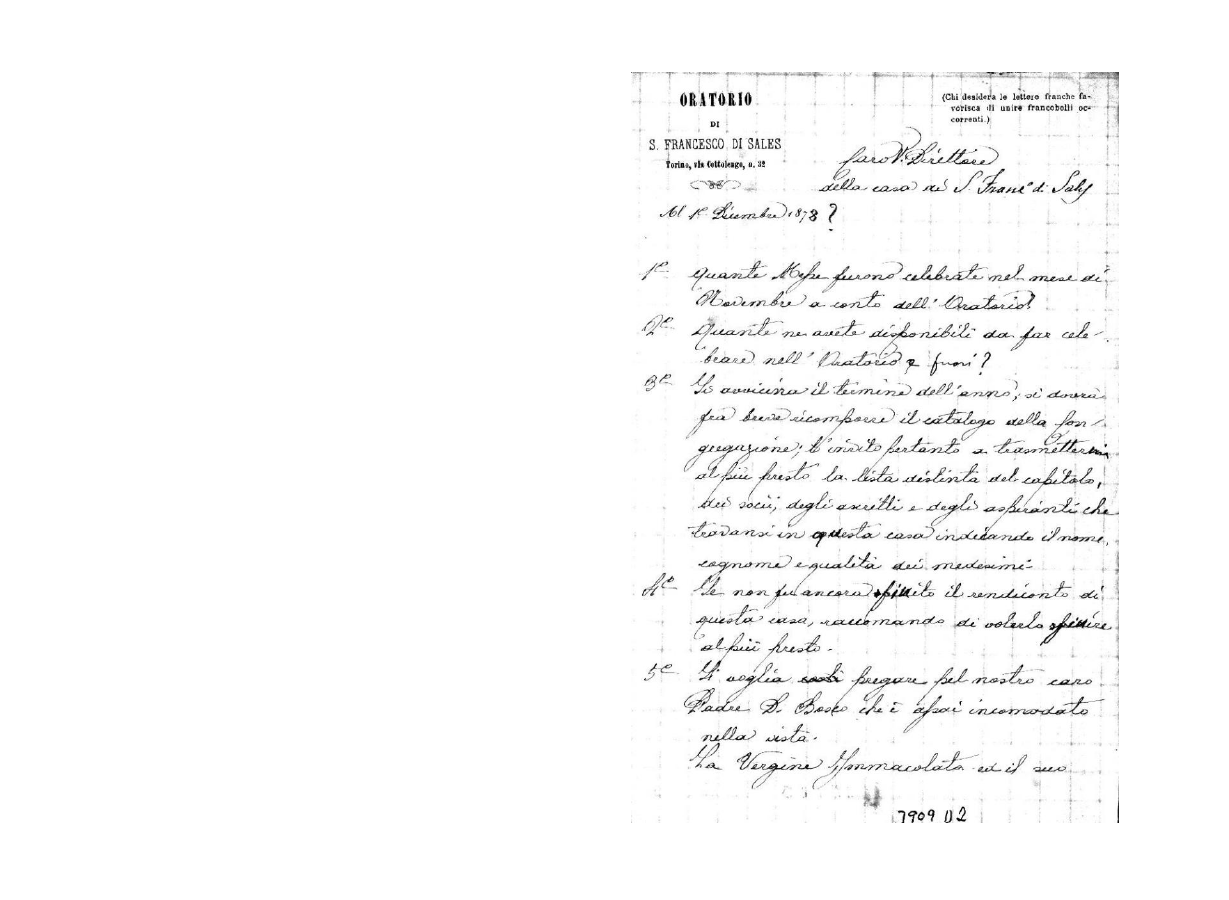 ORATORIO
DI
S. FRANCESCO DI SALES
Torino, via Cottolengo, n. 32
(Chi desidera le lettere franche fa-
vorisca di unire francobolli oc-
correnti.)
Caro V. Direttore
della casa di S. Franc° di Sales
Al 1° Dicembre 1878 ?
1° Quante Messe furono celebrate nel mese di
Novembre a conto dell' Oratorio?
2° Quante ne avete disponibili da far cele-
brare nell' Oratorio e fuori?
3° Si avvicina il termine dell'anno, si dovrà
fra breve ricomporre il catalogo della Con-
gregazione; t'invito pertanto a trasmettermi
al più presto la lista distinta del capitolo,
dei socii, degli ascritti e degli aspiranti che
trovansi in questa casa indicando il nome,
cognome e qualità dei medesimi.
4° Se non fu ancora spedito il rendiconto di
questa casa, raccomando di volerlo spedire
al più presto.
5° Si voglia pregare pel nostro caro
Padre D. Bosco che è assai incomodato
nella vista.
La Vergine Immacolata ed il suo
7909 D2